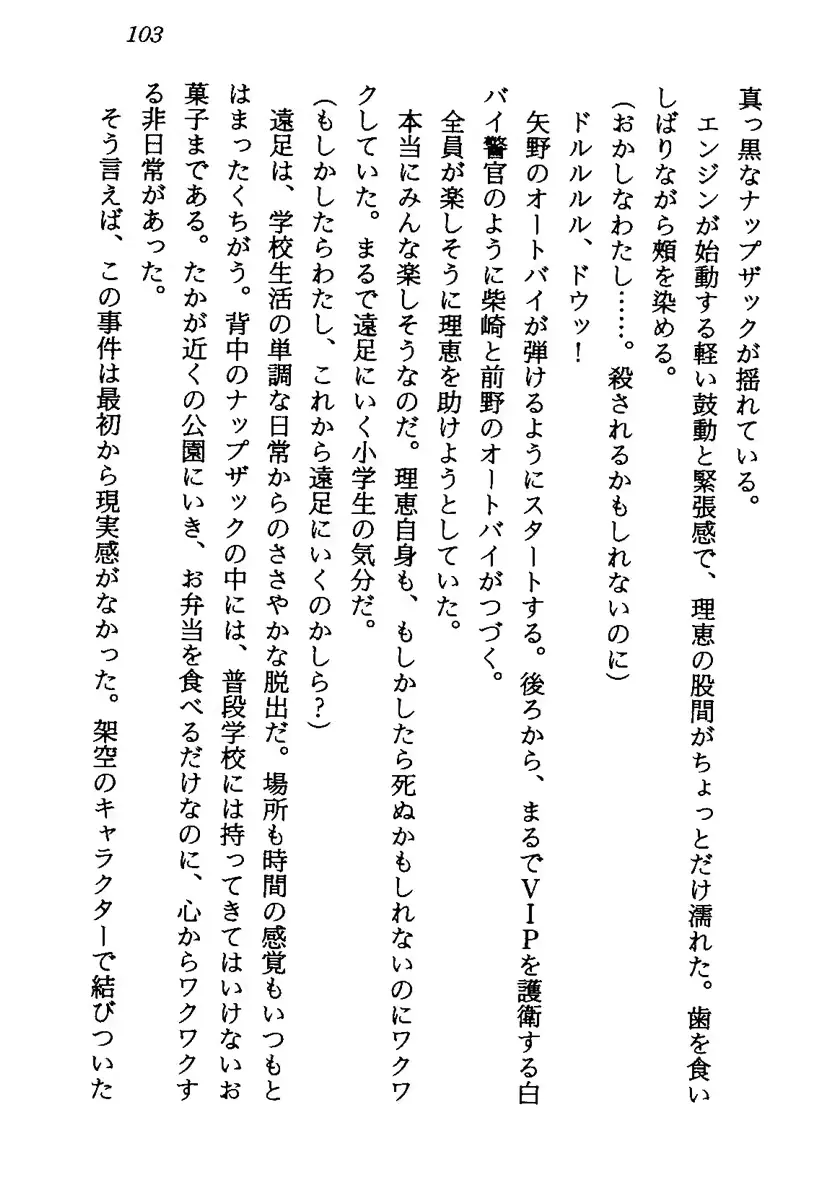 103
真っ黒なナップザックが揺れている。
エンジンが始動する軽い鼓動と緊張感で、理恵の股間がちょっとだけ濡れた。歯を食い
しばりながら頰を染める。
(おかしなわたし……。殺されるかもしれないのに)
ドルルルル、ドウッ！
矢野のオートバイが弾けるようにスタートする。後ろから、まるでVIPを護衛する白
バイ警官のように柴崎と前野のオートバイがつづく。
全員が楽しそうに理恵を助けようとしていた。
本当にみんな楽しそうなのだ。理恵自身も、もしかしたら死ぬかもしれないのにワクワ
クしていた。まるで遠足にいく小学生の気分だ。
(もしかしたらわたし、これから遠足にいくのかしら？)
遠足は、学校生活の単調な日常からのささやかな脱出だ。場所も時間の感覚もいつもと
はまったくちがう。背中のナップザックの中には、普段学校には持ってきてはいけないお
菓子まである。たかが近くの公園にいき、お弁当を食べるだけなのに、心からワクワクす
る非日常があった。
そう言えば、この事件は最初から現実感がなかった。架空のキャラクターで結びついた